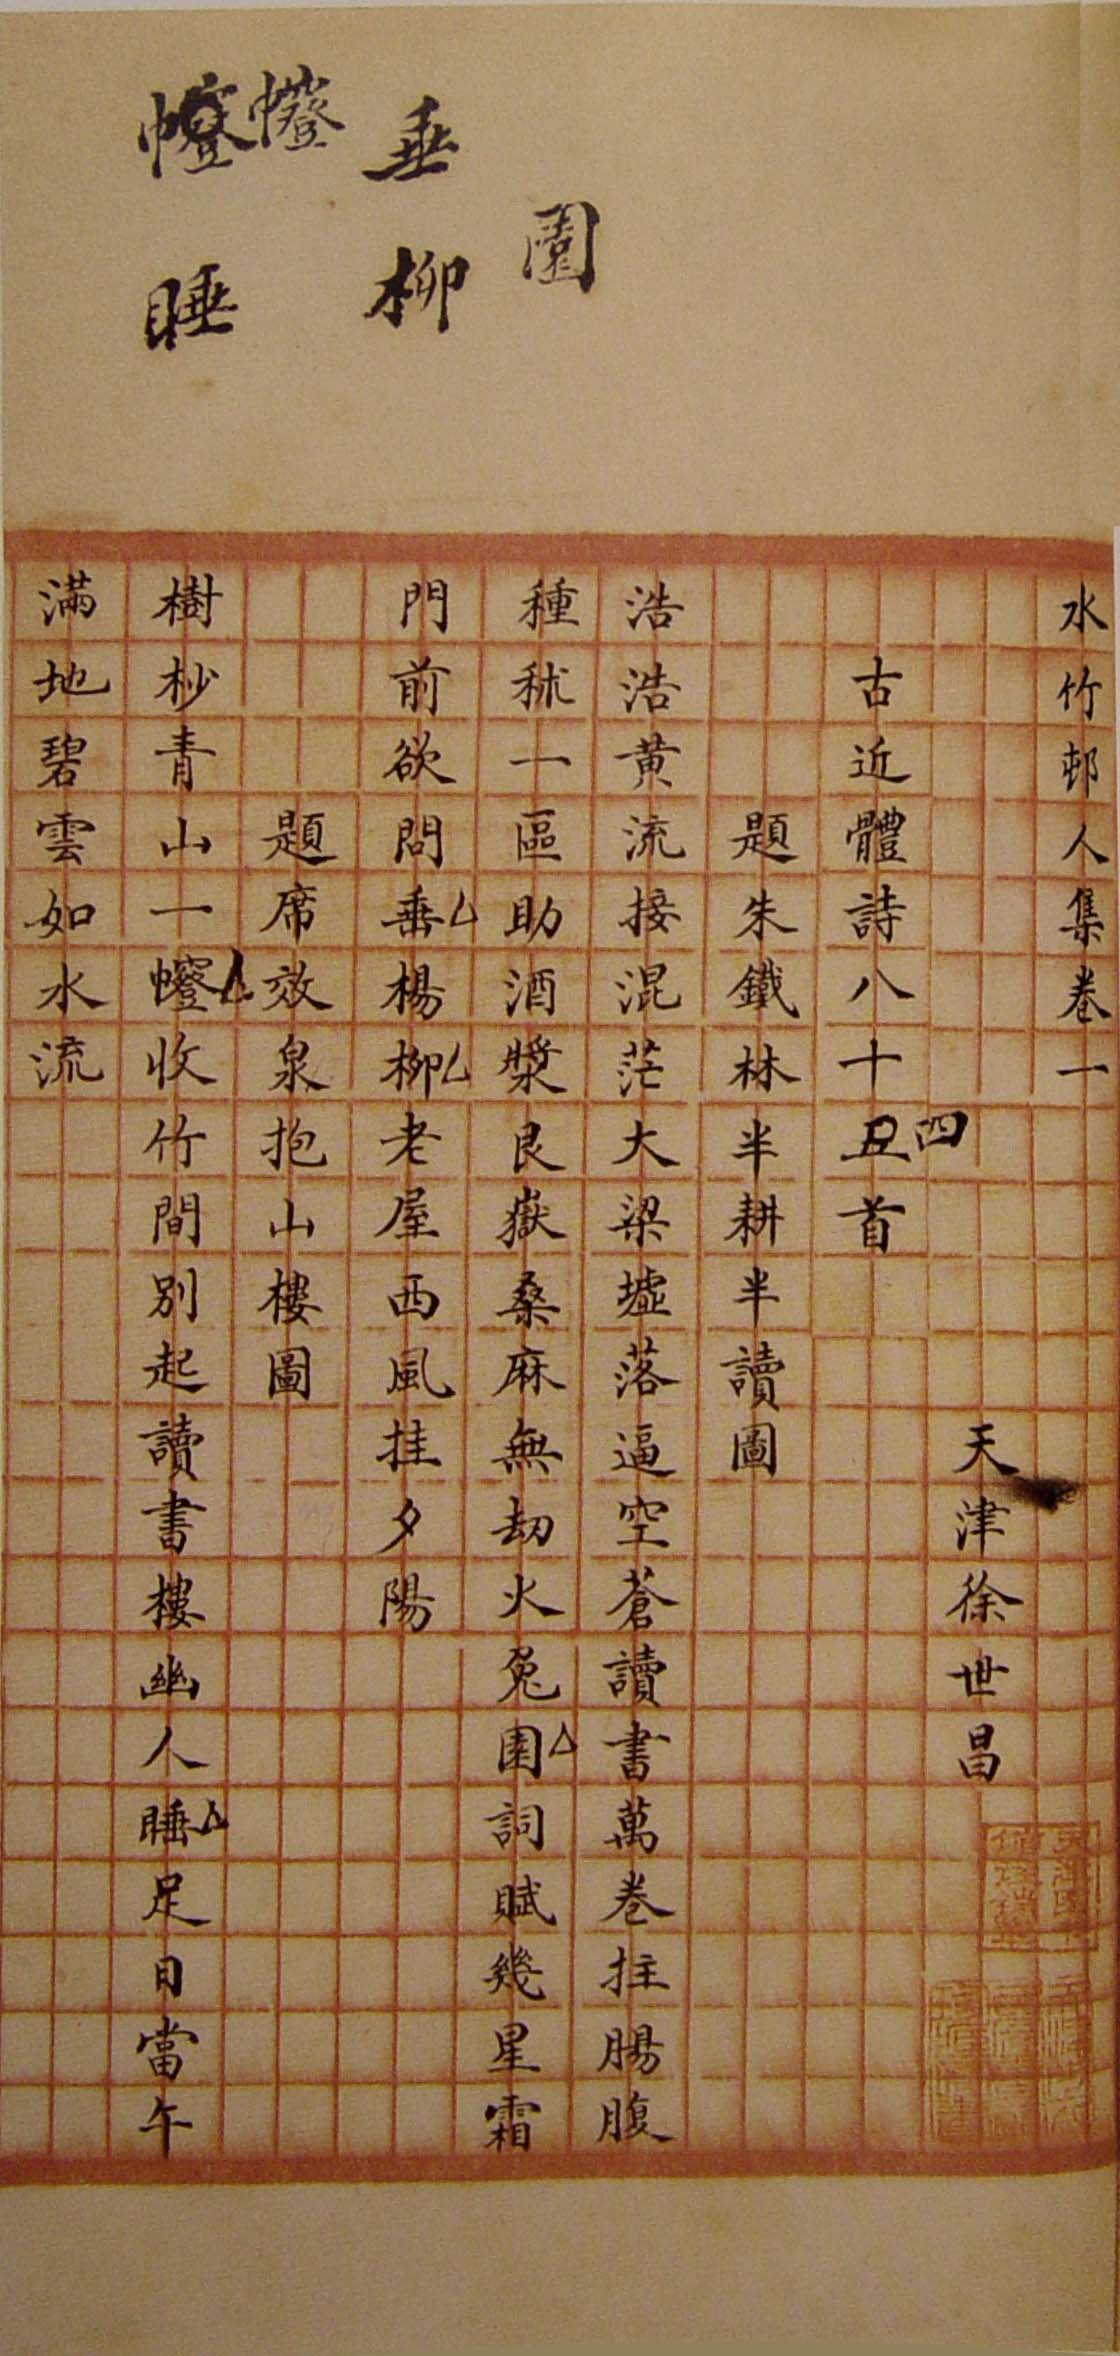 園
垂柳
幰
幰睡
水竹邨人集卷一
天津徐世昌
古近體詩八十五首
四
題朱鐵林半耕半讀圖
浩浩黃流接混茫大梁墟落逼空蒼讀書萬卷拄腸腹
種秫一區助酒漿艮嶽桑麻無劫火兔園詞賦幾星霜
門前欲問垂楊柳老屋西風挂夕陽
題席效泉抱山樓圖
樹杪青山一幰收竹間別起讀書樓幽人睡足日當午
滿地碧雲如水流